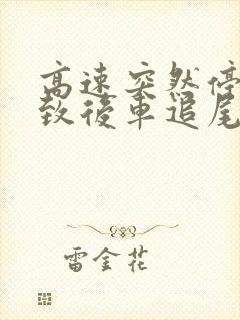 高速突然停
致後車追尾
雷金花